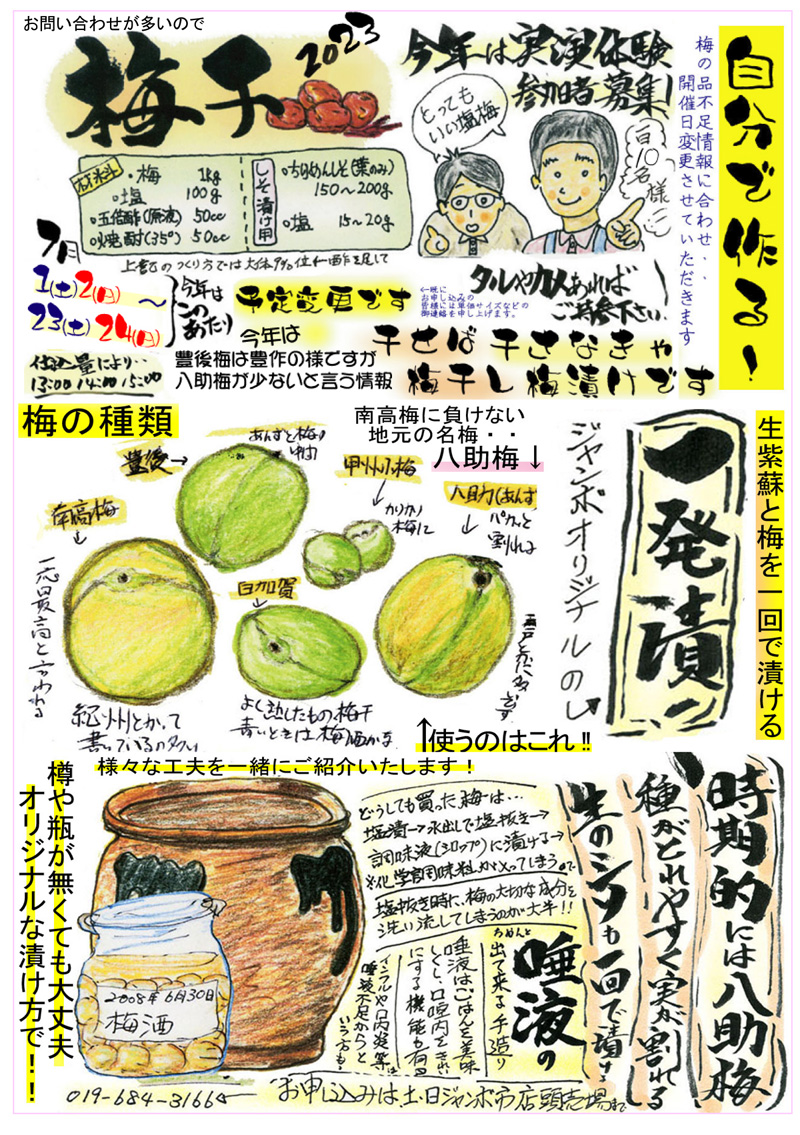 お問い合わせが多いので
梅干
2023
今年は実演体験
参加者募集!
自分で作る!
梅の品不足情報に合わせ・・
開催日変更させていただきます
とっても
いい塩梅
百10名様に
材料
・梅 1kg
・塩 100g
・五倍酢(原液) 50cc
・焼酎(35°) 50cc
しそ漬け用
・ちりめんしそ(葉のみ)
150~200g
・塩 15~20g
7月
1(土)2(日)
~
23(土)24(日)
今年は
このあたり
予定変更です
←既に
お申し込みの
皆様には単価サイズなどの
御連絡を申し上げます。
タルやカメあれば
ご持参下さい.
仕込量により‥
13:00 14:00 15:00
今年は
豊後梅は豊作の様ですが
八助梅が少ないと言う情報
干せば干さなきゃ
梅干し梅漬けです
梅の種類
南高梅に負けない
地元の名梅・・
八助梅↓
豊後→
あんずと梅の
甲州小梅
カリカリ
梅に
八助(あんず)
パカッと
割れる
南高梅
一応最高と言われる
白加賀
よく熟したもの梅干
青いときは梅酒かな
紀州とかって
書っているの多い
↑使うのはこれ!!
ジャンボオリジナルの
一発漬
生紫蘇と梅を一回で漬ける
様々な工夫を一緒にご紹介いたします!
樽や瓶が無くても大丈夫
オリジナルな漬け方で!!
2008年6月30日
梅酒
どうしても買った梅は…
塩漬→水出しで塩抜き→
調味液(シロップ)に漬ける→
※化学調味料が入ってしまうので
塩抜き時に、梅の大切な成分を
洗い流してしまうのが大半!!
ちゃんと
出て来る手造り
唾液の
唾液はごはんを美味
しくし、口腔内をきれい
にする機能も有
インフルや口内炎等は
唾液不足からと
いう方も・
時期的には八助梅
種がとれやすく実が割れる
生のシソも一回で漬ける
019-684-3166
お申し込みは、土・日ジャンボ市店頭売場まで